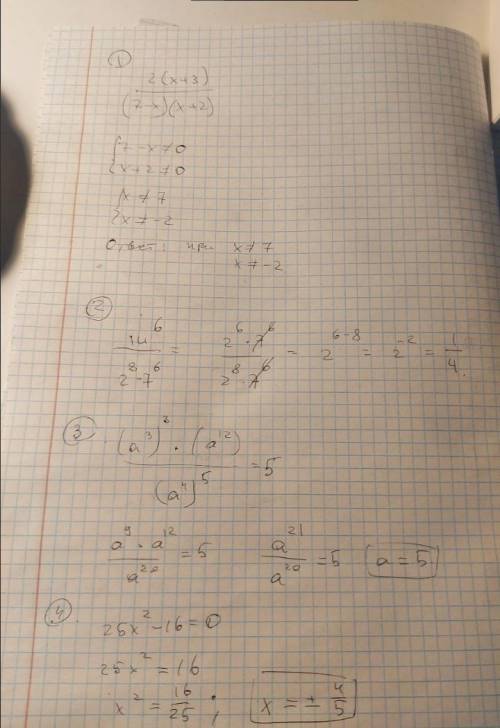 1
2(x+3)
(7-x)(x+2)
{7-x≠0
{x+2≠0
{x≠7
{x≠-2
Ответ: при x≠7
x≠-2
2
14^6 / 2^8·7^6 = 2^6·7^6 / 2^8·7^6 = 2^(6-8) = 2^-2 = 1/4.
3
(a^3)^3 · (a^12) / (a^4)^5 = 5
a^9·a^12 / a^20 = 5  a^21 / a^20 = 5  a=5
4
25x^2-16=0
25x^2=16
x^2=16/25; x=±4/5